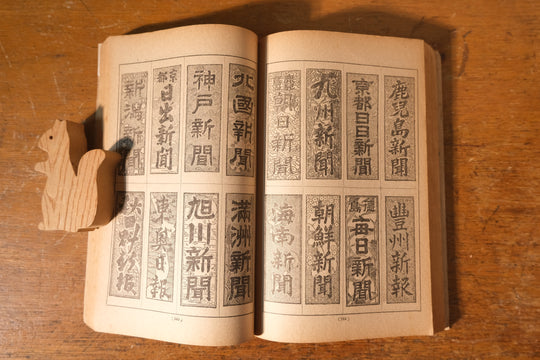 鹿兒島新聞
京都日日新聞
九州新聞
朝日新聞
豐州新報
毎日新聞
朝鮮新聞
海南新聞
北國新聞
神戸新聞
京都日出新聞
新潟新聞
滿洲新聞
旭川新聞
東奥日報